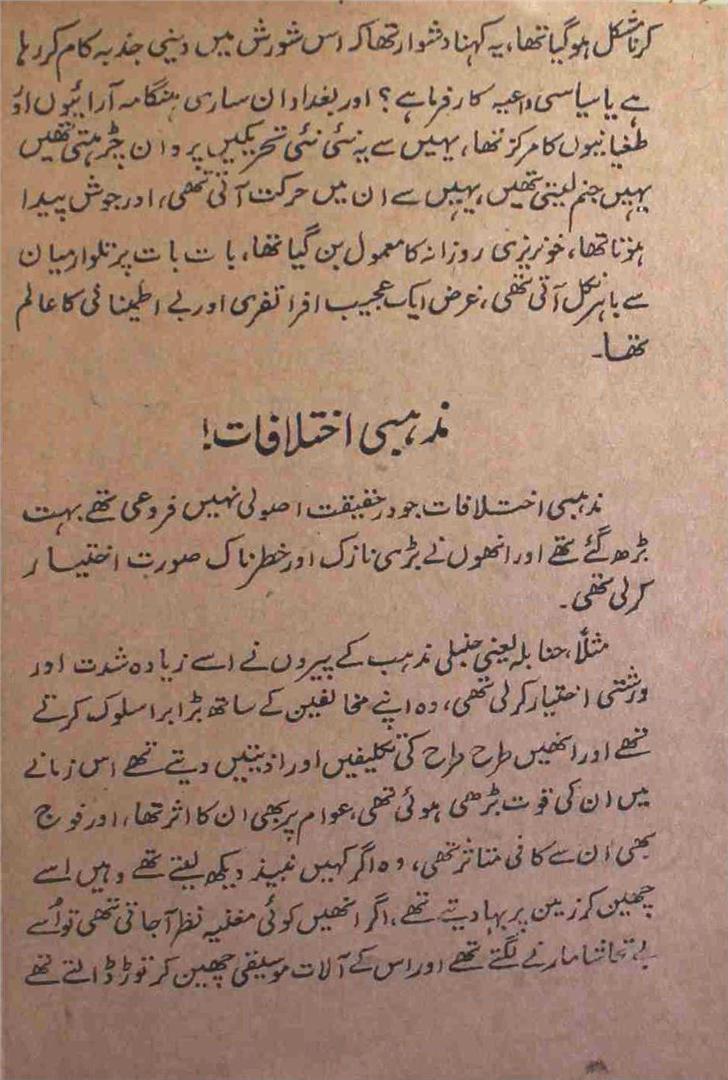 کرنا مشکل ہوگیا تھا، یہ کہنا دشوار تھا کہ اس شورش میں دینی جذبہ کام کر رہا
ہے یا سیاسی داعیہ کارفرما ہے؟ اور بغداد ان ساری ہنگامہ آرائیوں اور
طغیانیوں کا مرکز تھا، یہیں سے یہ نئی نئی تحریکیں پروان چڑھتی تھیں
یہیں جنم لیتی تھیں، یہیں سے ان میں حرکت آتی تھی، اور جوش پیدا
ہوتا تھا، خونریزی روزانہ کا معمول بن گیا تھا، بات بات پر تلوار میان
سے باہر نکل آتی تھی، غرض ایک عجیب افراتفری اور بے اطمینانی کا عالم
تھا۔
مذہبی اختلافات!
مذہبی اختلافات جو درحقیقت اصولی نہیں فروعی تھے بہت
بڑھ گئے تھے اور انھوں نے بڑی نازک اور خطرناک صورت اختیار
کرلی تھی۔
مثلاً، حنابلہ یعنی حنبلی مذہب کے پیروں نے اسے زیادہ شدت اور
درشتی اختیار کرلی تھی، وہ اپنے مخالفین کے ساتھ بڑا برا سلوک کرتے
تھے اور انھیں طرح طرح کی تکلیفیں اور اذیتیں دیتے تھے اس زمانے
میں ان کی قوت بڑھی ہوئی تھی، عوام پر بھی ان کا اثر تھا، اور فوج
بھی ان سے کافی متاثر تھی، وہ اگر کہیں نبیذ دیکھ لیتے تھے وہیں اسے
چھین کر زمین پر بہا دیتے تھے، اگر انھیں کوئی مغنیہ نظر آجاتی تھی تو اُسے
بے تحاشا مارنے لگتے تھے اور اس کے آلات موسیقی چھین کر توڑ ڈالتے تھے